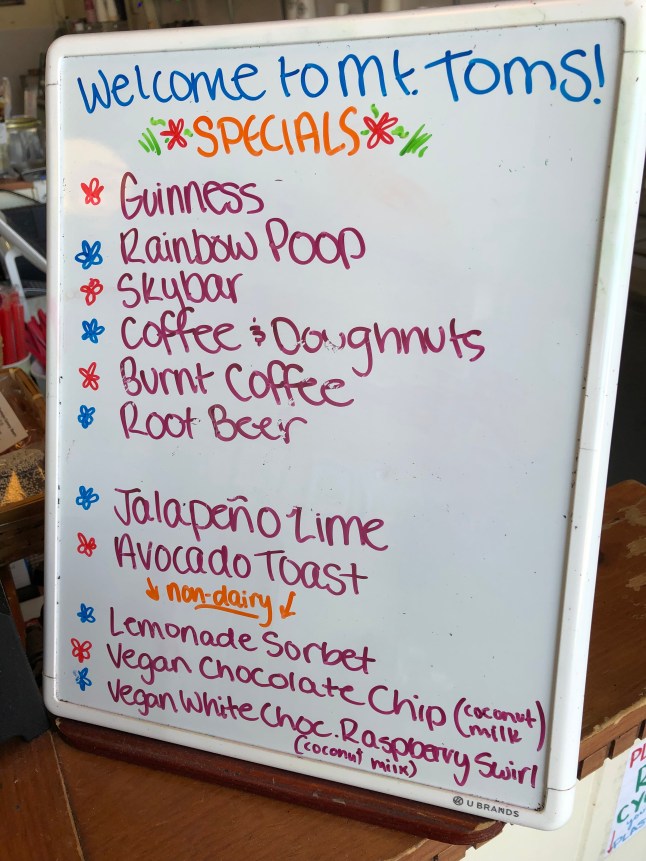 Welcome to Mt. Toms!
SPECIALS
Guinness
Rainbow Poop
Skybar
Coffee & Doughnuts
Burnt Coffee
Root Beer
Jalapeño Lime
Avocado Toast
non-dairy
Lemonade Sorbet
Vegan Chocolate Chip (coconut milk)
Vegan White Choc. Raspberry Swirl
(coconut milk)
U BRANDS